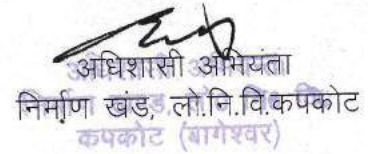 अधिशासी अभियंता
निर्माण खंड, लो.नि.वि.कपकोट
कपकोट (बागेश्वर)